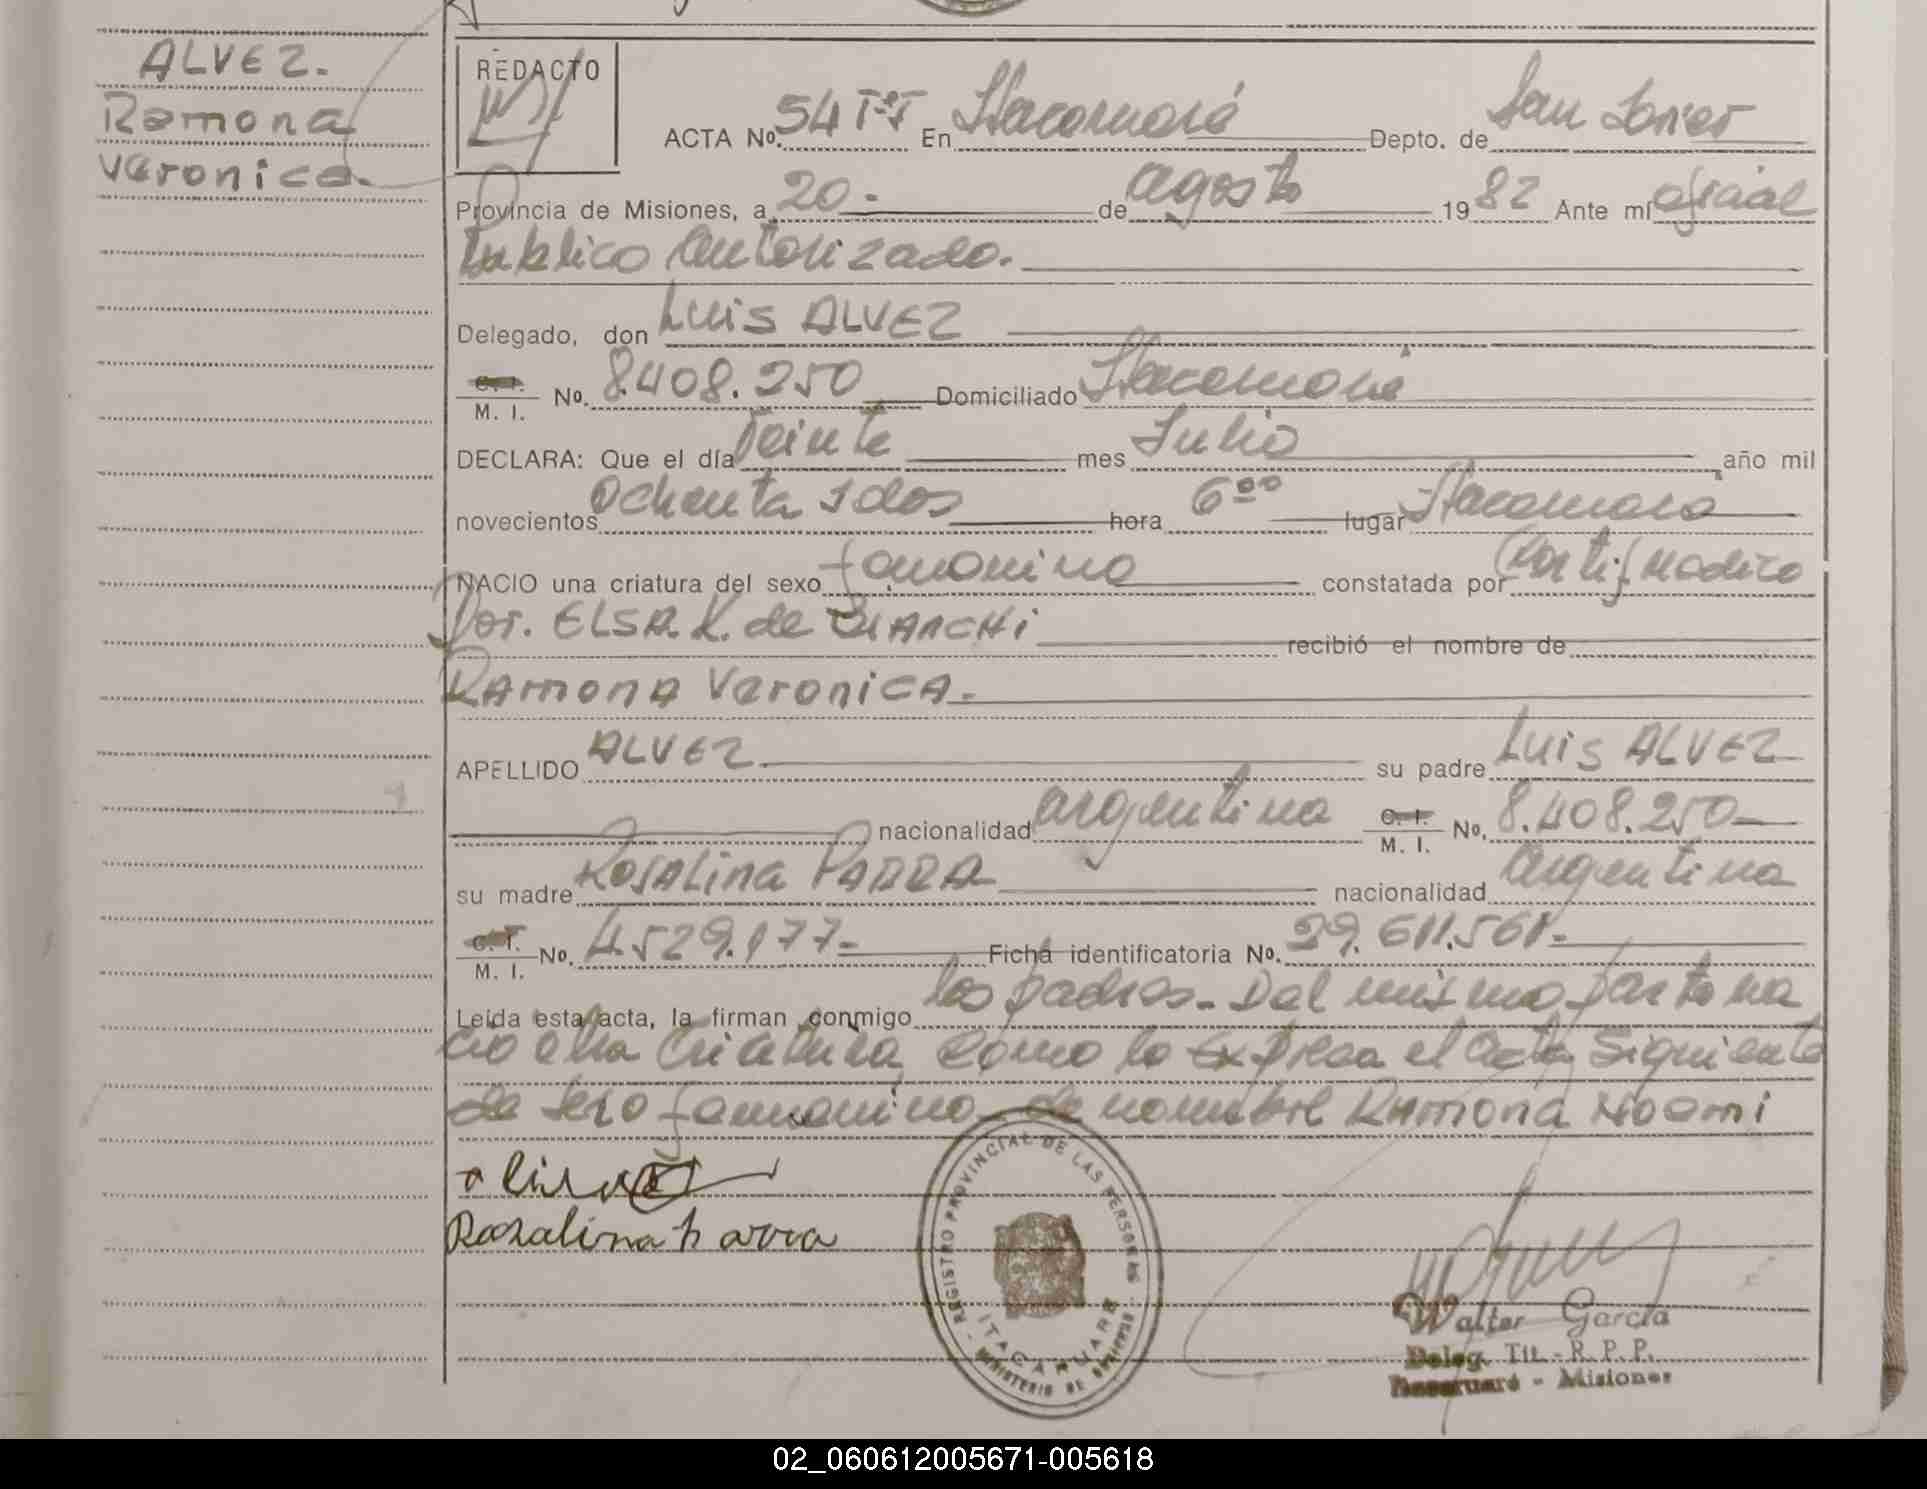 ALVEZ.
Ramona
Veronica.
REDACTO
ACTA No. 54 T-I En Itacaruaré Depto. de San Javier
Provincia de Misiones, a 20.- de agosto 1982 Ante mí oficial
Publico Autorizado.
Delegado, don Luis ALVEZ
C. I. / M. I. No. 8.408.250 Domiciliado Itacaruaré
DECLARA: Que el día Veinte mes Julio año mil
novecientos Ochenta y dos hora 6°° lugar Itacaruaré
NACIO una criatura del sexo femenino constatada por Certif medico
Dor. ELSA K. de BIANCHI recibió el nombre de
RAmona VeroniCA.
APELLIDO ALVEZ su padre Luis ALVEZ
nacionalidad argentina C. I. / M. I. No. 8.408.250
su madre ROSALina PARRA nacionalidad argentina
C. I. / M. I. No. 4.529.177- Ficha identificatoria No. 29.611.561.-
Leída esta acta, la firman conmigo los padres. Del mismo parto na
cio otra Criatura como lo Expresa el acta Siguiente
de sexo femenino de nombre Ramona Noemi
Rosalina Parra
REGISTRO PROVINCIAL DE LAS PERSONAS
ITACARUARE
MINISTERIO DE GOBIERNO
Walter García
Deleg. Tit. - R. P. P.
Itacaruaré - Misiones
02_060612005671-005618